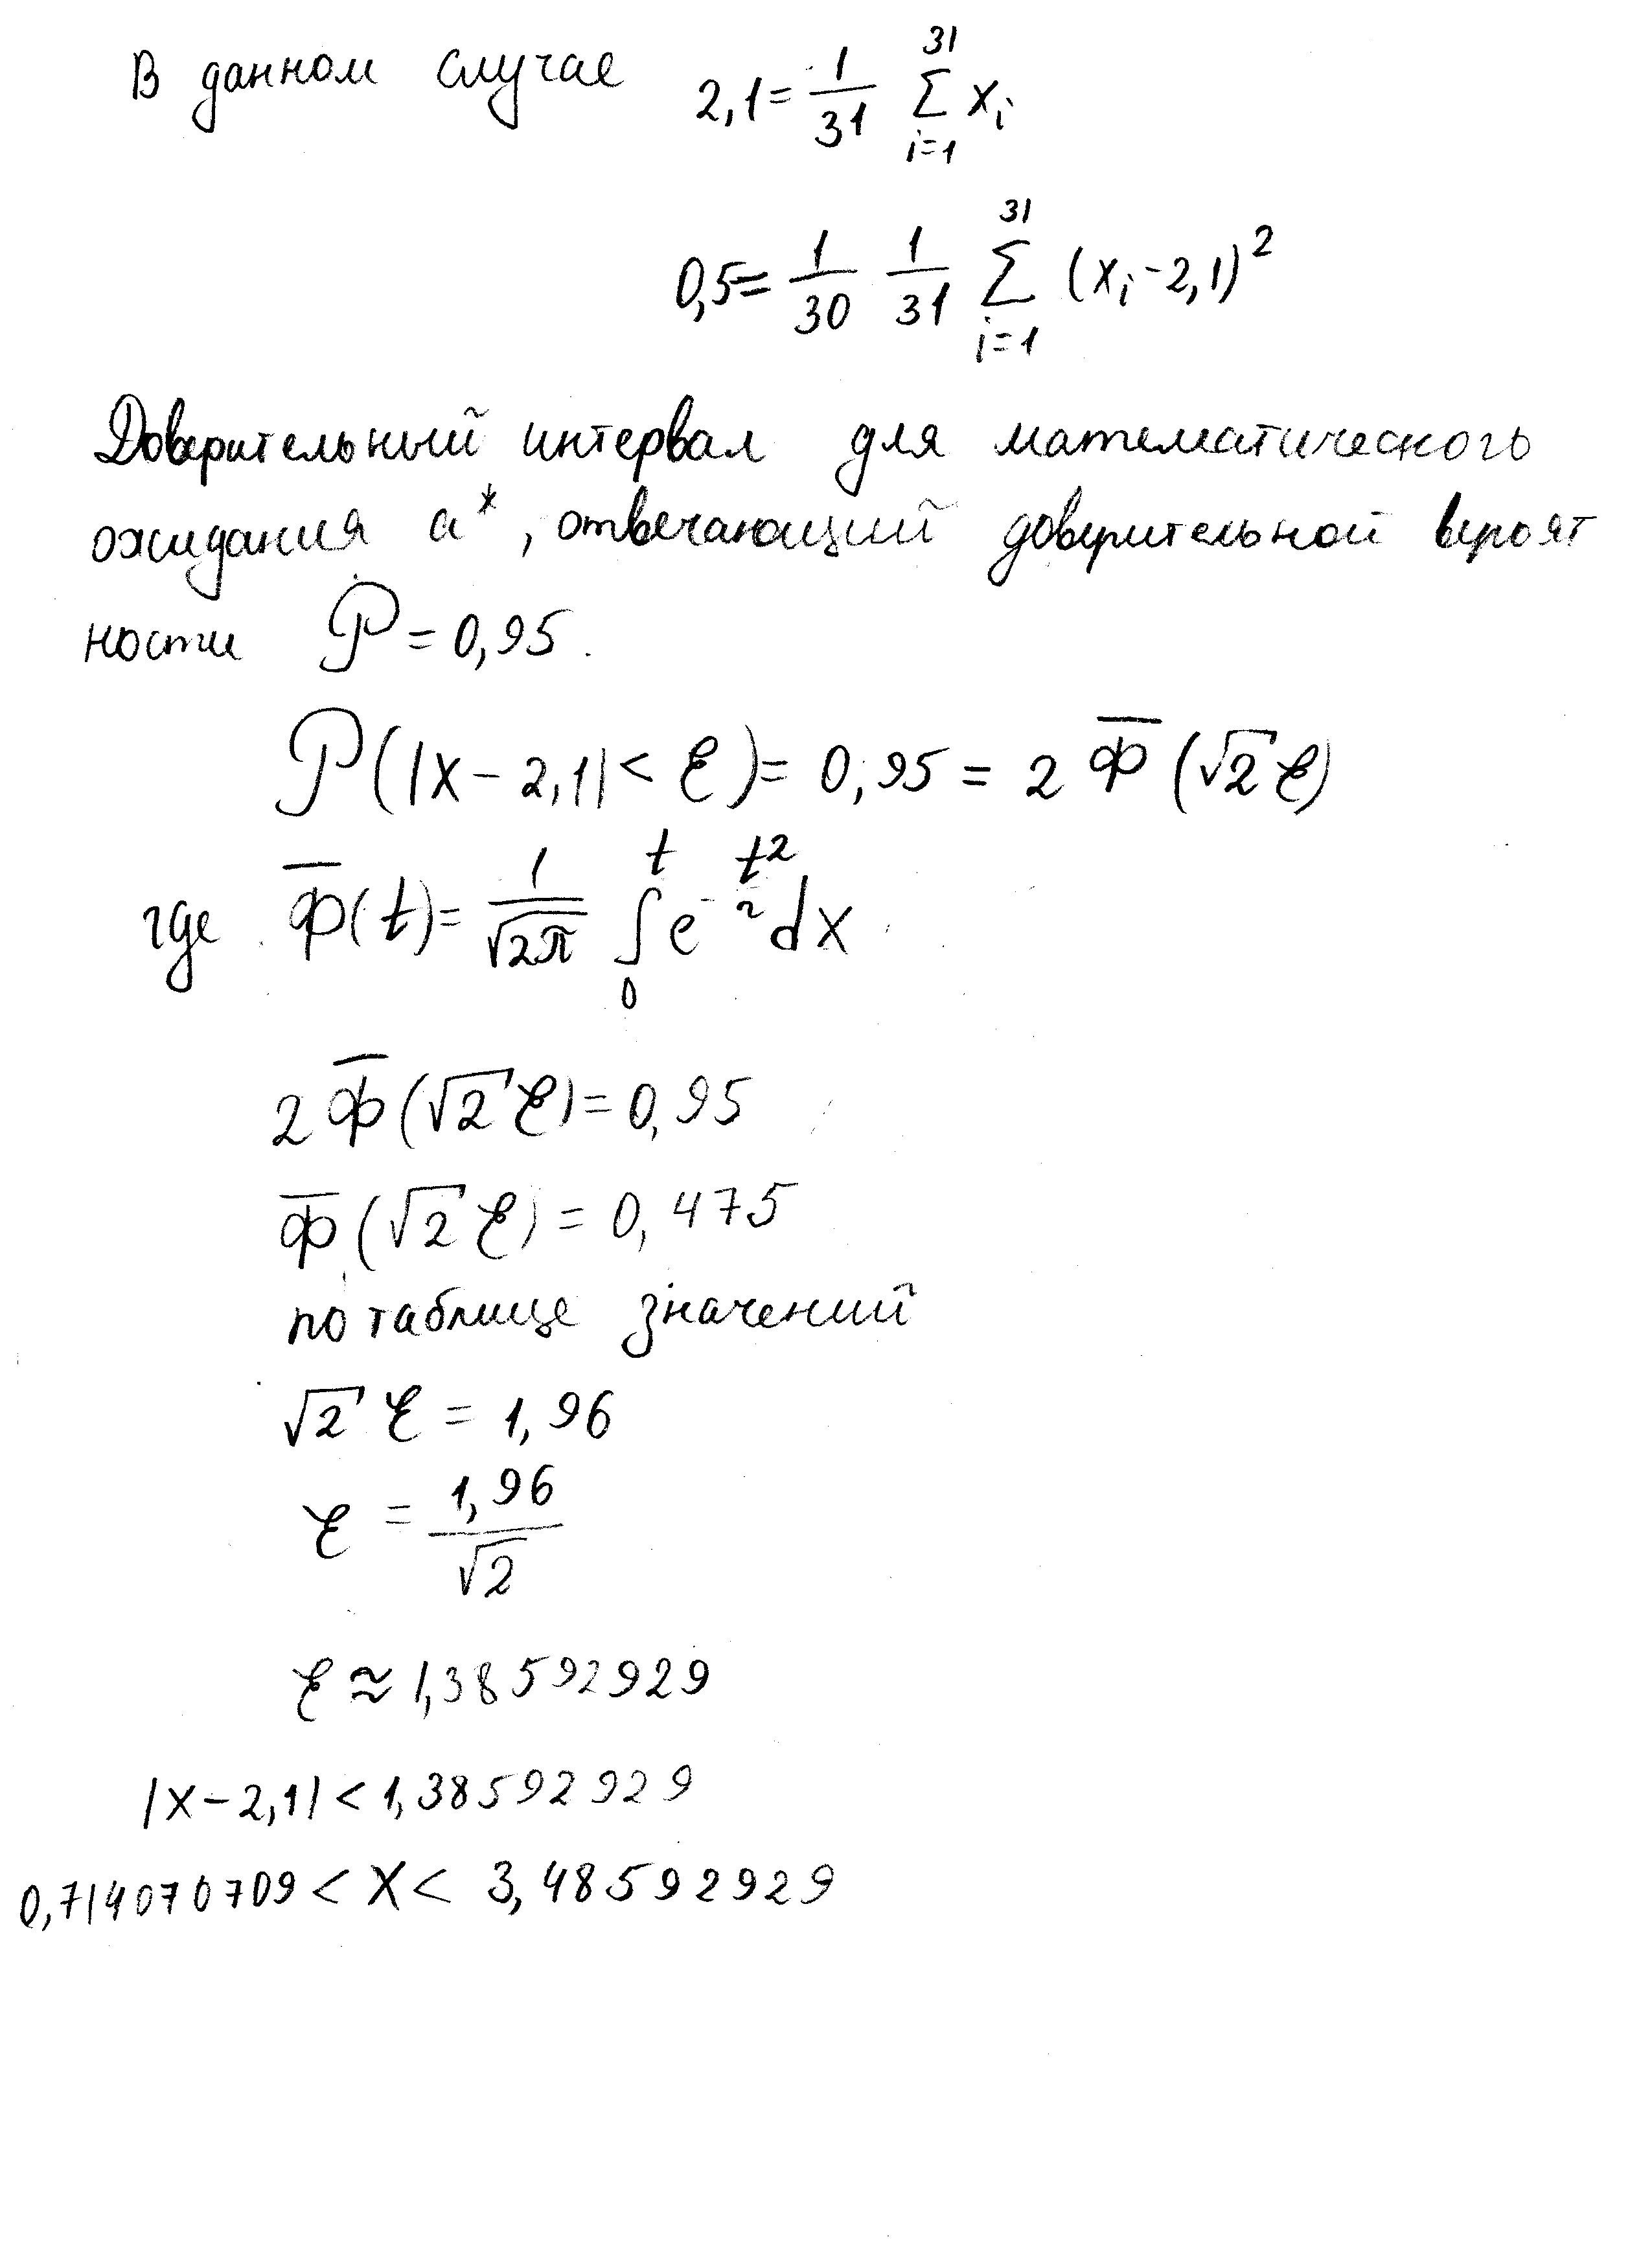 В данном случае 2,1 = 1/31 Σ_{i=1}^{31} x_i
0,5 = 1/30 1/31 Σ_{i=1}^{31} (x_i - 2,1)^2
Доверительный интервал для математического
ожидания a*, отвечающий доверительной вероят
ности P = 0,95.
P(|X - 2,1| < ε) = 0,95 = 2 Ф̅ (√2 ε)
где Ф̅(t) = 1/√2π ∫_0^t e^{-t^2/2} dx
2 Ф̅ (√2 ε) = 0,95
Ф̅ (√2 ε) = 0,475
по таблице значений
√2 ε = 1,96
ε = 1,96/√2
ε ≈ 1,38592929
|X - 2,1| < 1,38592929
0,714070709 < X < 3,48592929